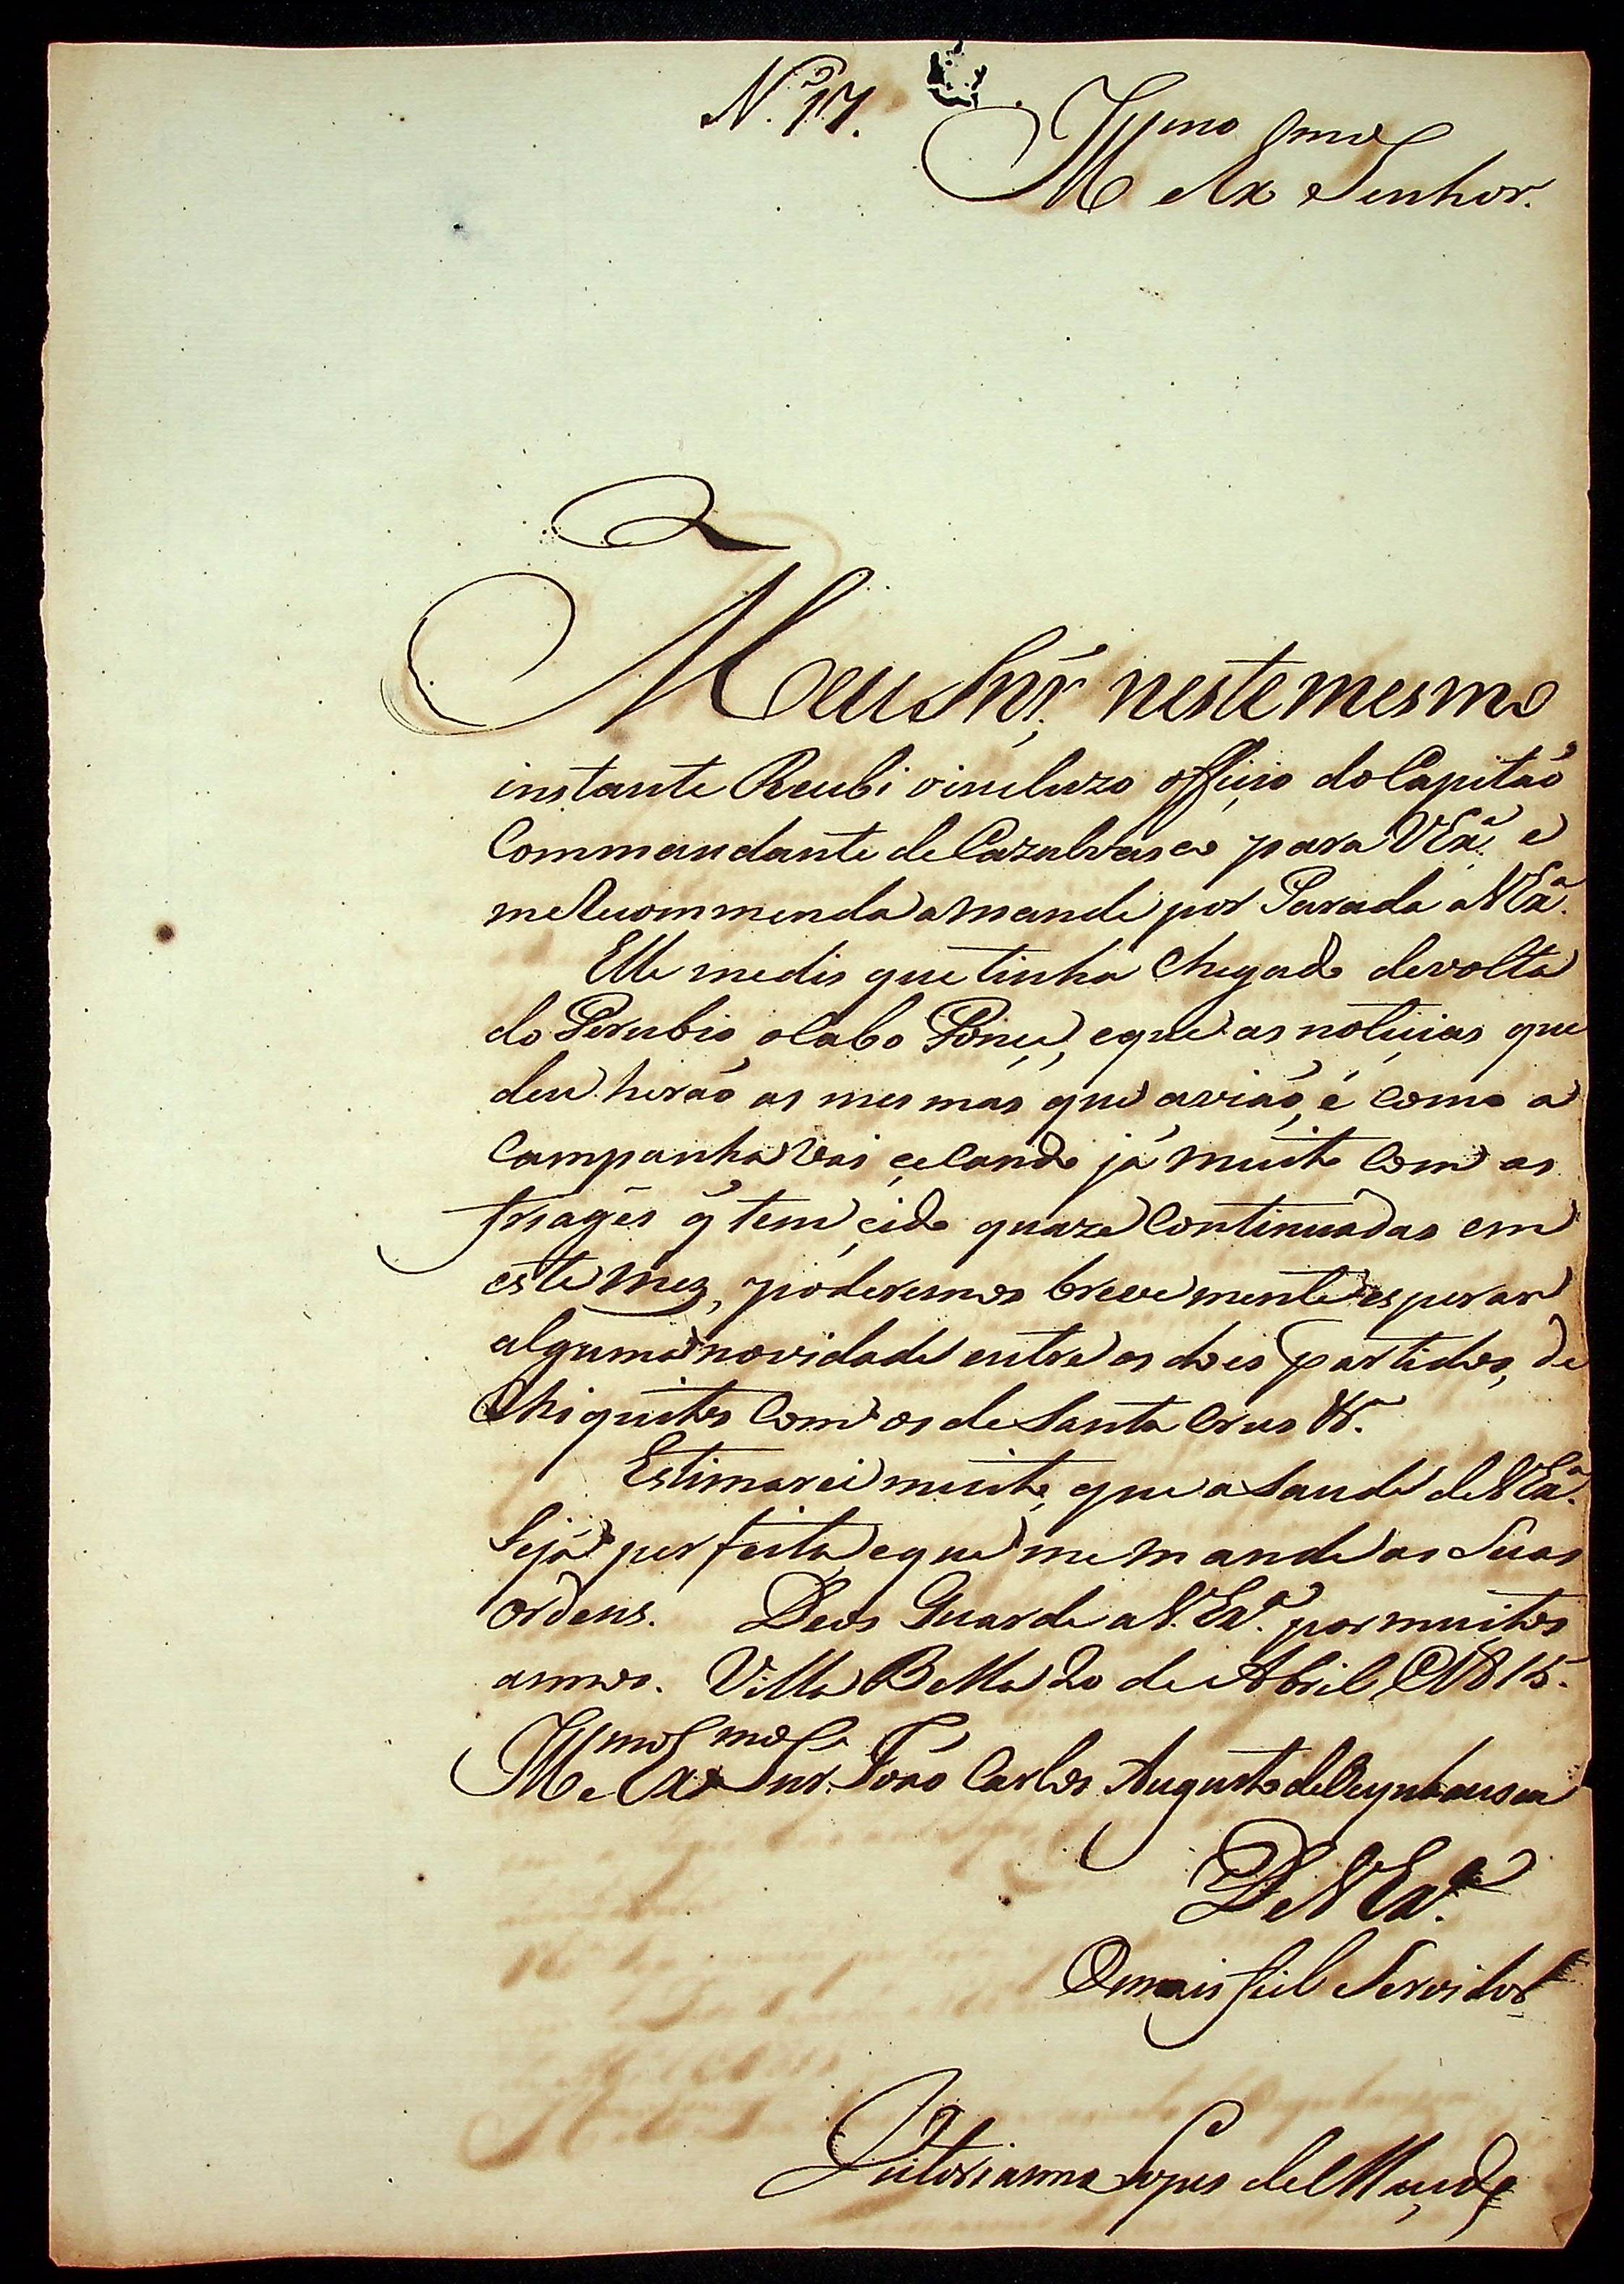 N.º 17.
Ill.mo e Ex.mo Senhor.
Meu Snr̃. neste mesmo
instante Recebi o incluzo officio do Capitaõ
Commandante de Cazalvasco para VExª. e
me Recommenda a mande por Parada a VExª.
Elle me dis que tinha chegado de volta
do Perubio o Cabo Ponce, e que as noticias que
deu heraõ as mesmas que aviaõ, é como a
Campanha vai çecando já muito com as
friages q̃ tem çido quaze Continuadas em
este mez, poderemos brevemente esperar
alguma novidade entre os dois partidos, de
Chiquitos Com os de Santa Crus &ª.
Estimarei muito, que a Saude de VExª.
Sejá perfeita, e que me mande as Suas
ordens. Deos Guarde a V.Exª. por muitos
annos. Villa Bella 20 de Abril @ 1815.
Ill.mo e Ex.mo Snr. Joaõ Carlos Augusto de Oeynhausen
De V Exª.
O mais fiel Servidor
Victorianno Lopes de Maçedo